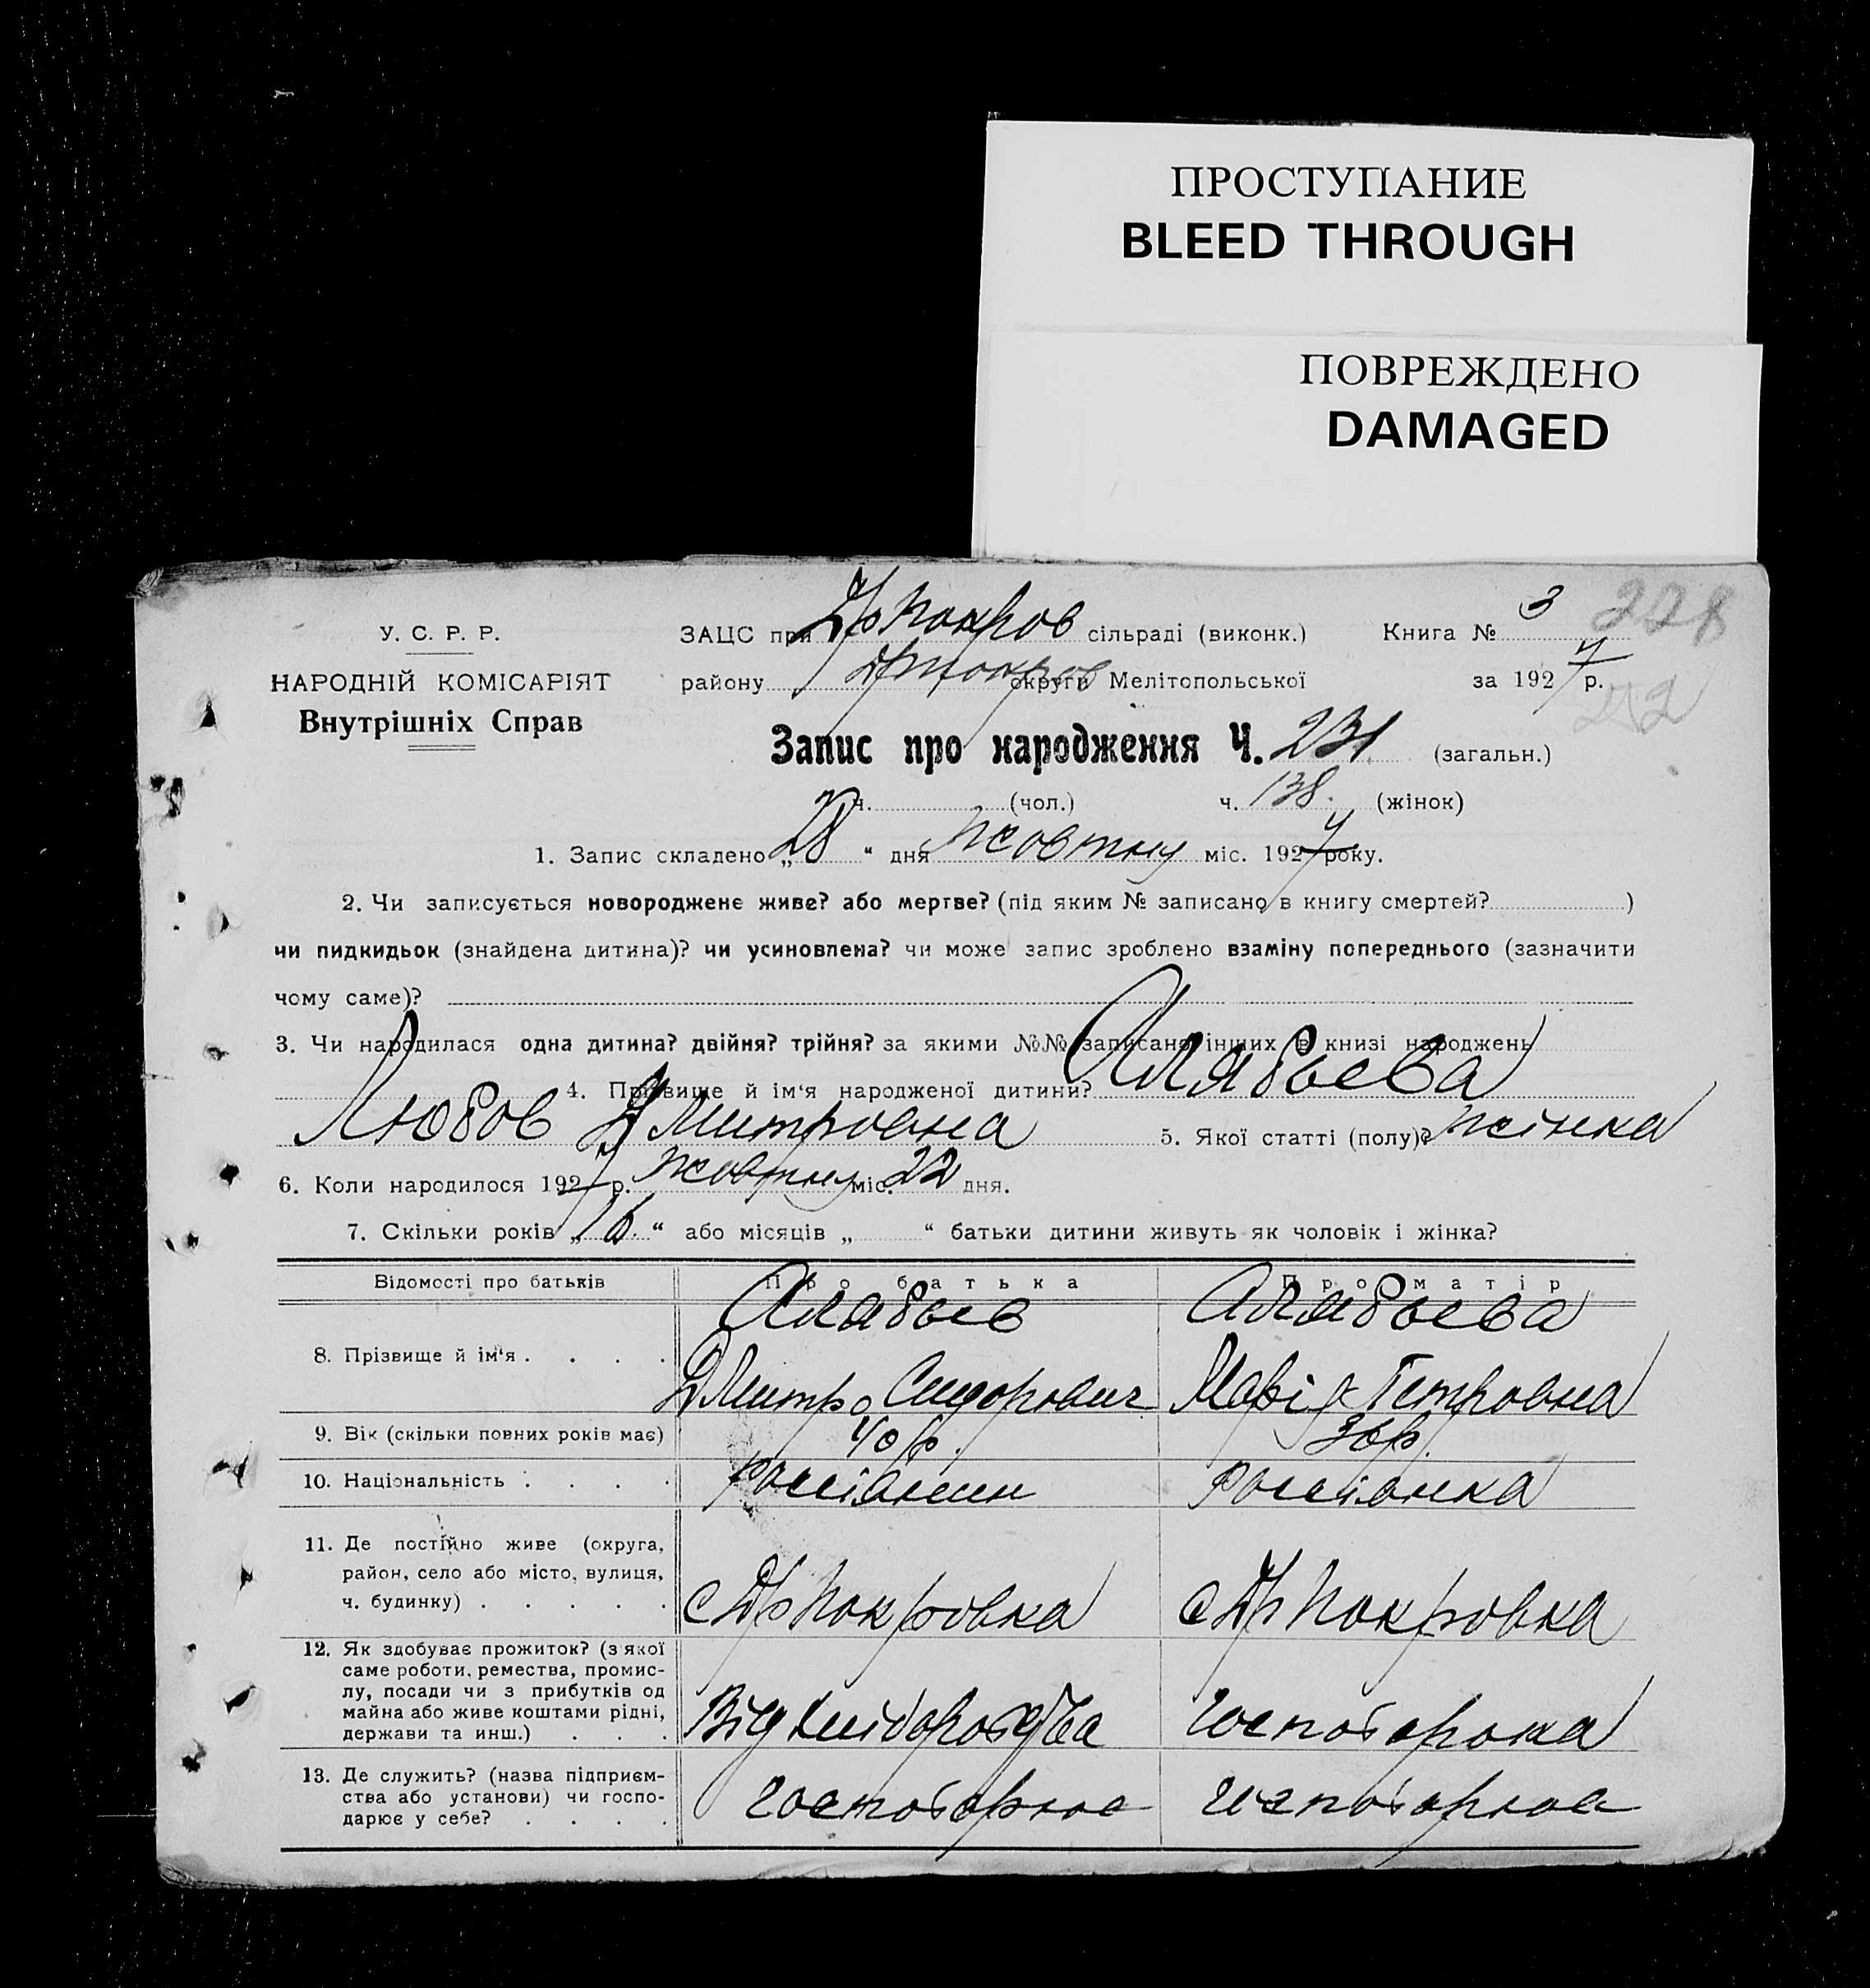 ПРОСТУПАНИЕ
BLEED THROUGH
ПОВРЕЖДЕНО
DAMAGED
228
У. С. Р. Р.
НАРОДНІЙ КОМІСАРІЯТ
Внутрішніх Справ
ЗАЦС при Др Покров сільраді (виконк.) Книга № 3
району округи Мелітопольської за 1927 р.
Запис про народження Ч. 231 (загальн.)
ч. (чол.) ч. 138. (жінок)
1. Запис складено „ 28 “ дня Жовтня міс. 1927 року.
2. Чи записується новороджене живе? або мертве? (під яким № записано в книгу смертей? )
чи пидкидьок (знайдена дитина)? чи усиновлена? чи може запис зроблено взаміну попереднього (зазначити
чому саме)?
3. Чи народилася одна дитина? двійня? трійня? за якими №№ записано інших в книзі народжень
4. Прізвище й ім‘я народженої дитини? Алябьева
Любов Дмитровна 5. Якої статті (полу)? жінка
6. Коли народилося 1927 р. Жовтня міс. 22 дня.
7. Скільки років „ 16 “ або місяців „ “ батьки дитини живуть як чоловік і жінка?
Відомості про батьків Про батька Про матір
8. Прізвище й ім‘я . . . . Алябьев Алябьева
Дмитро Сидорович Марія Петровна
9. Вік (скільки повних років має) 40 р. 36 р.
10. Національність . . . . россіянин россіянка
11. Де постійно живе (округа,
район, село або місто, вулиця,
ч. будинку) . . . . . с Др Покровка с Др Покровка
12. Як здобуває прожиток? (з якої
саме роботи, ремества, промис-
лу, посади чи з прибутків од
майна або живе коштами рідні,
держави та инш.) . . . Від хліборобства
13. Де служить? (назва підприєм-
ства або установи) чи госпо-
дарює у себе? . . . . господарює господарює